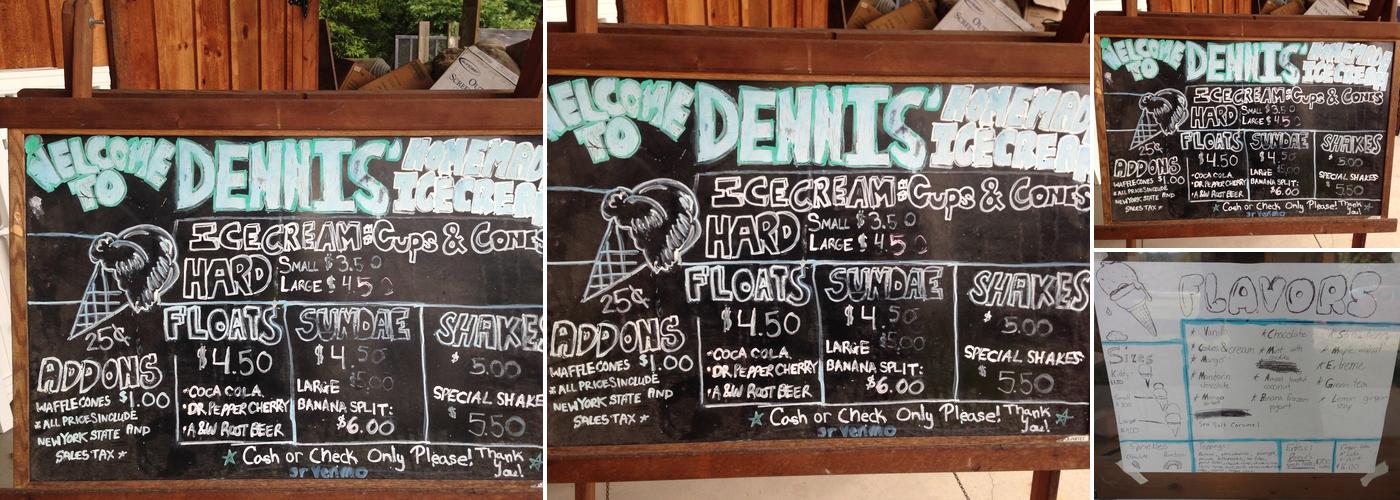 WELCOME TO DENNIS' HOMEMADE ICECREAM
ICECREAM: Cups & CONES
HARD
SMALL $3.50
LARGE $4.50
25¢
ADDONS
WAFFLE CONES $1.00
*ALL PRICES INCLUDE
NEW YORK STATE AND
SALES TAX *
FLOATS
$4.50
•COCA COLA
•DR PEPPER CHERRY
•A&W ROOT BEER
SUNDAE
$4.50
LARGE $5.00
BANANA SPLIT:
$6.00
SHAKES
$5.00
SPECIAL SHAKES
$5.50
Cash or Check Only Please! Thank you!
or Venmo
WELCOME TO DENNIS' HOMEMADE ICECREAM
ICECREAM: Cups & CONES
HARD
SMALL $3.50
LARGE $4.50
25¢
ADDONS
WAFFLE CONES $1.00
*ALL PRICES INCLUDE
NEW YORK STATE AND
SALES TAX *
FLOATS
$4.50
•COCA COLA
•DR PEPPER CHERRY
•A&W ROOT BEER
SUNDAE
$4.50
LARGE $5.00
BANANA SPLIT:
$6.00
SHAKES
$5.00
SPECIAL SHAKES
$5.50
Cash or Check Only Please! Thank you!
or Venmo
WELCOME TO DENNIS' HOMEMADE ICECREAM
ICECREAM: Cups & CONES
HARD
SMALL $3.50
LARGE $4.50
ADDONS
WAFFLE CONES $1.00
*ALL PRICES INCLUDE
NEW YORK STATE AND
SALES TAX *
FLOATS
$4.50
•COCA COLA
•DR PEPPER CHERRY
•A&W ROOT BEER
SUNDAE
$4.50
LARGE $5.00
BANANA SPLIT:
$6.00
SHAKES
$5.00
SPECIAL SHAKES
$5.50
Cash or Check Only Please! Thank you!
or Venmo
FLAVORS
Sizes
* Chocolate
* Cookies & cream
* Mint
* Mango
* Mandarin chocolate
* Almond toasted coconut
* Green tea
* Mango
* Banana frozen yogurt
* Lemon ginger
Sea Salt Caramel
Sprinkles
Chocolate Rainbow
Toppings: